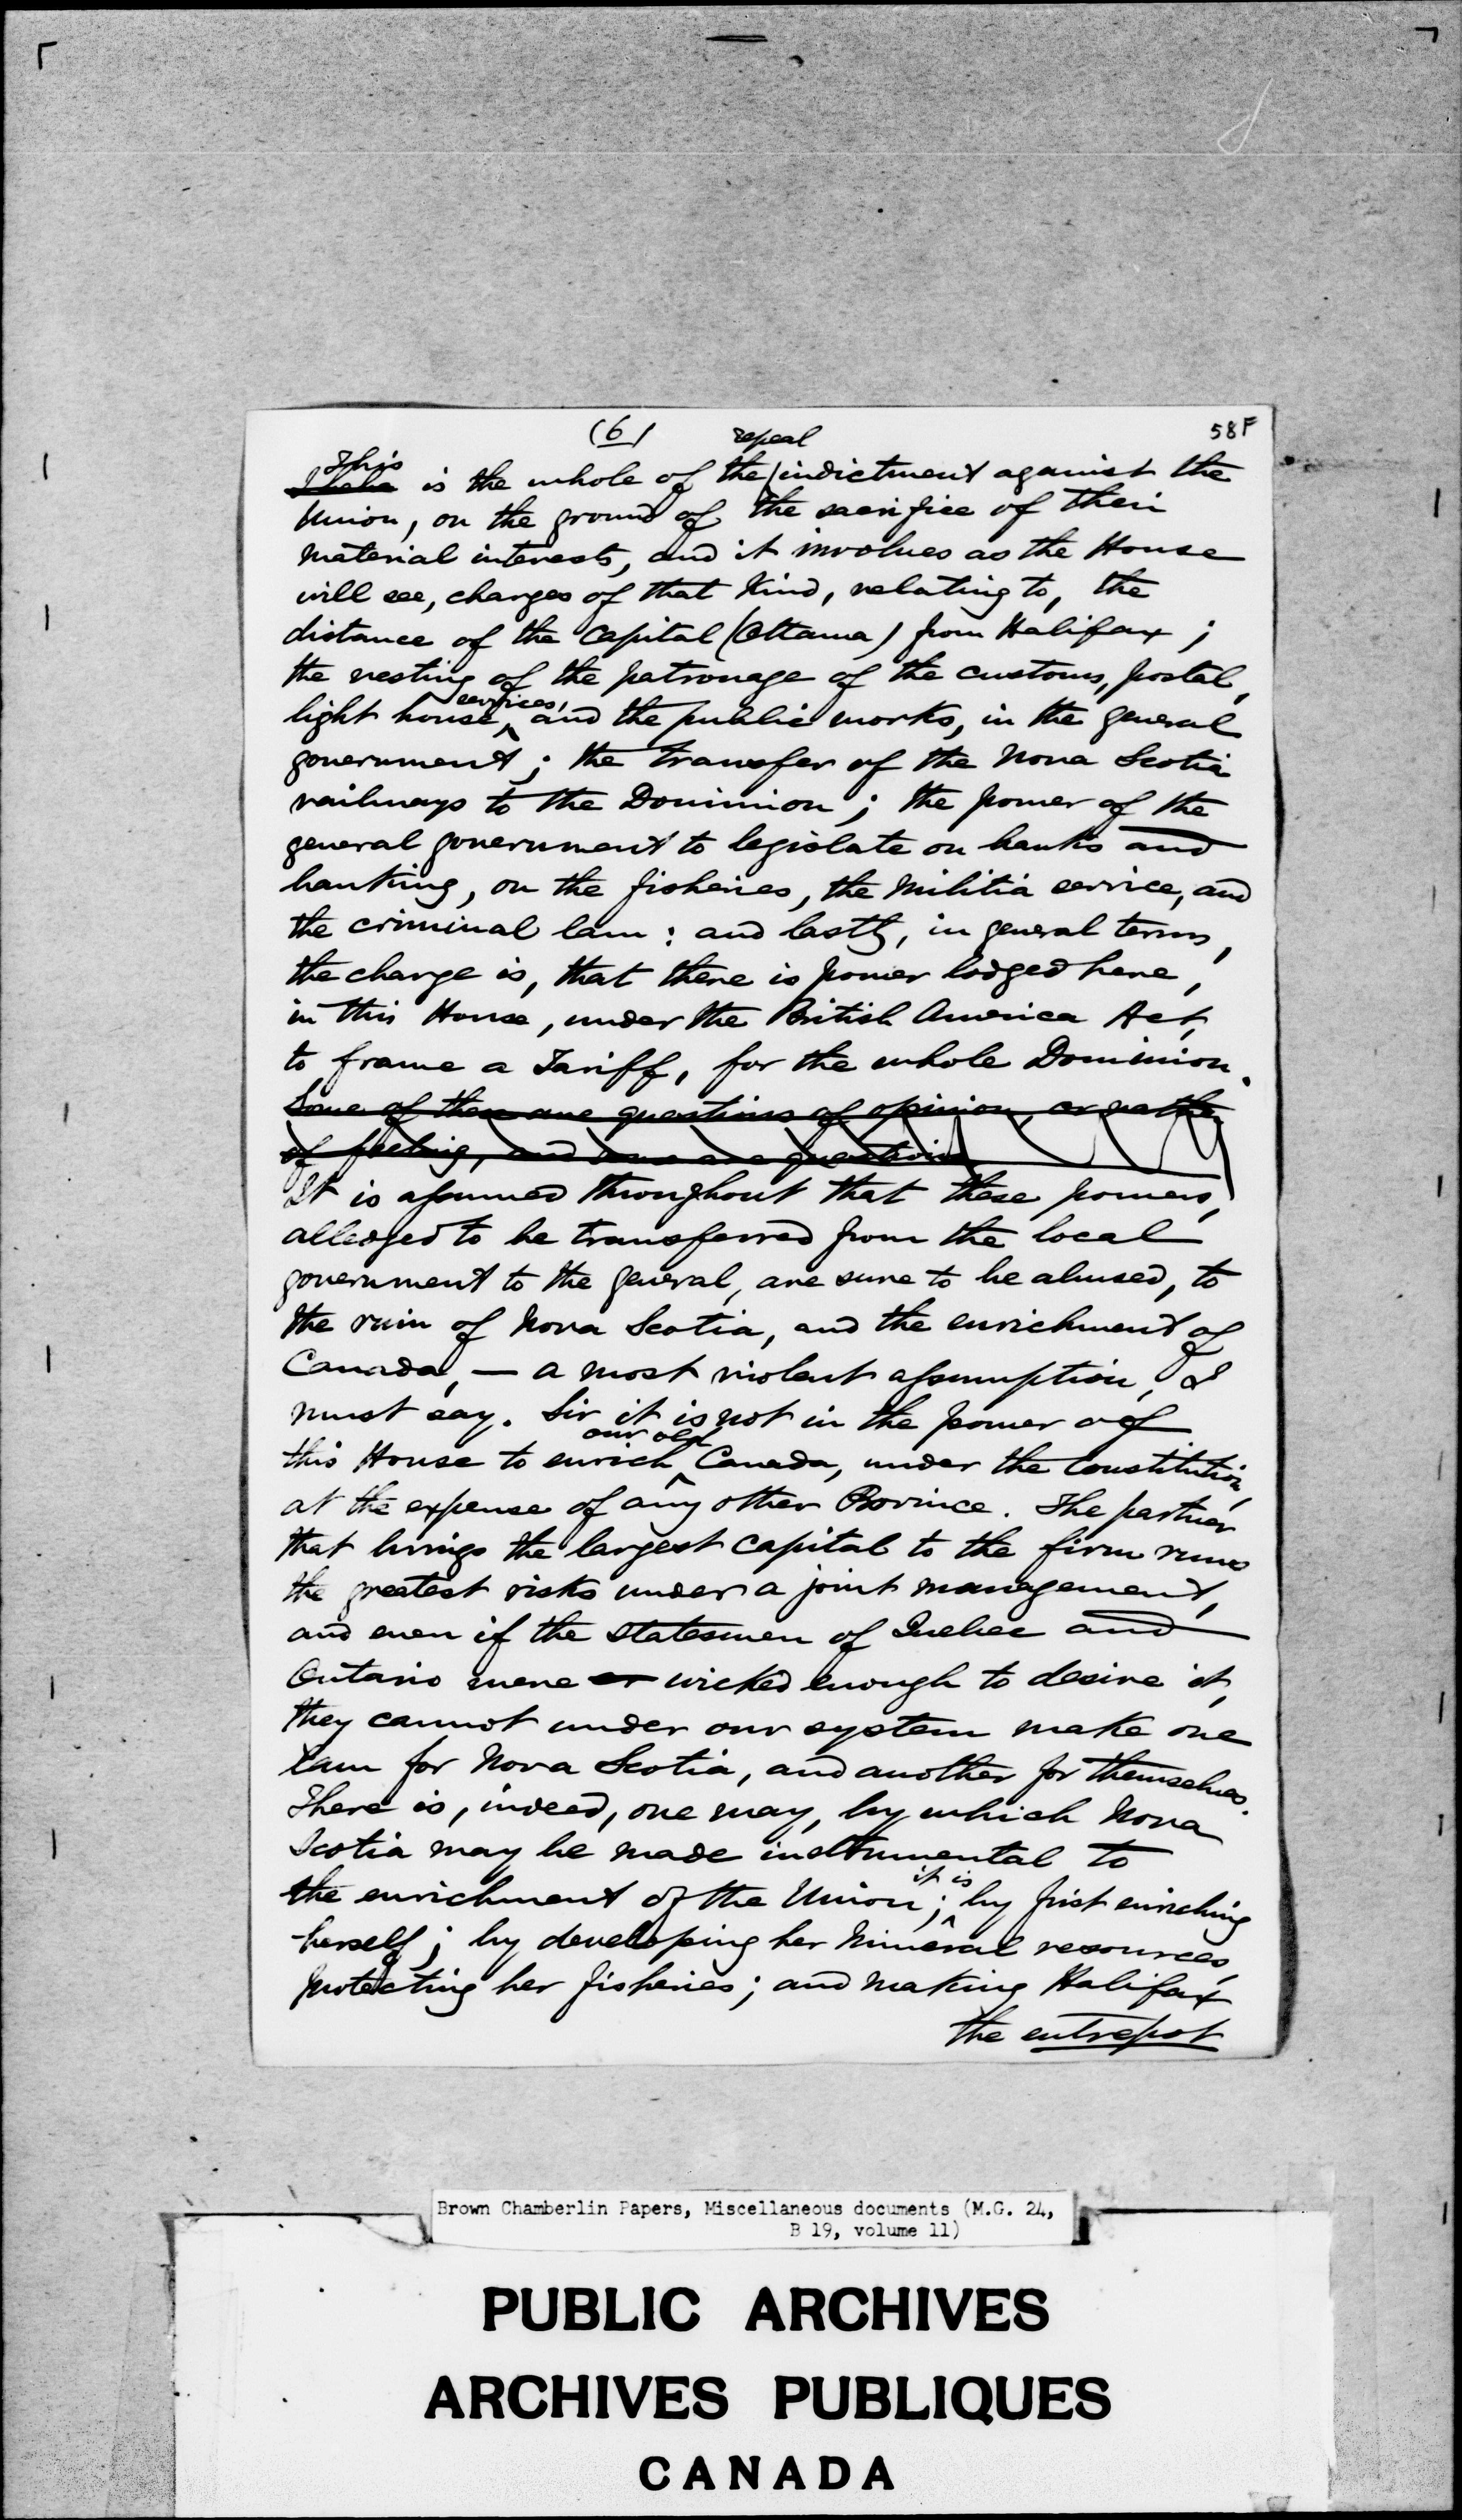 (6)
58F
repeal
This
is the whole of the indictment against the
Union, on the ground of the sacrifice of their
material interests, and it involves as the House
will see, charges of that kind, relating to, the
distance of the Capital (Ottawa) from Halifax;
the vesting of the patronage of the customs, postal,
services,
light house, and the public works, in the general
government; the transfer of the Nova Scotia
railways to the Dominion; the power of the
general government to legislate on banks and
banking, on the fisheries, the Militia service, and
the criminal law: and lastly, in general terms,
the charge is, that there is power lodged here,
in this House, under the British America Act,
to frame a Tariff, for the whole Dominion.
Some of these are questions of opinion, or rather
of feeling, and some are questions
It is assumed throughout that these powers,
alledged to be transferred from the local
government to the general, are sure to be abused, to
the ruin of Nova Scotia, and the enrichment of
Canada, — a most violent assumption, I
must say. Sir it is not in the power of
our old
this House to enrich Canada, under the Constitution,
at the expense of any other Province. The partner
that brings the largest Capital to the firm runs
the greatest risks under a joint management,
and even if the statesmen of Quebec and
Ontario were or wicked enough to desire it,
they cannot under our system make one
law for Nova Scotia, and another for themselves.
There is, indeed, one way, by which Nova
Scotia may be made instrumental to
it is
the enrichment of the Union; by first enriching
herself; by developing her Mineral resources,
protecting her fisheries; and making Halifax
the entrepot
Brown Chamberlin Papers, Miscellaneous documents (M.G. 24,
B 19, volume 11)
PUBLIC ARCHIVES
ARCHIVES PUBLIQUES
CANADA